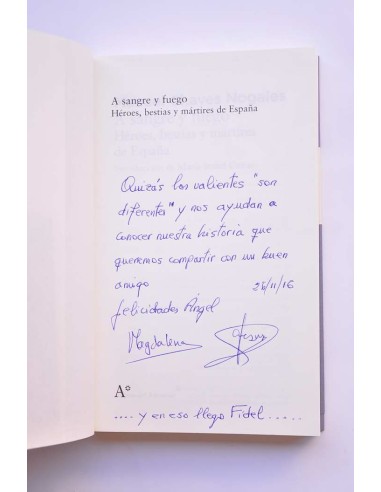 A sangre y fuego
Héroes, bestias y mártires de España
Quizás los valientes "son
diferentes" y nos ayudan a
conocer nuestra historia que
queremos compartir con un buen
amigo 26/11/16
felicidades Ángel
Magdalena
A
.... y en eso llego Fidel.....